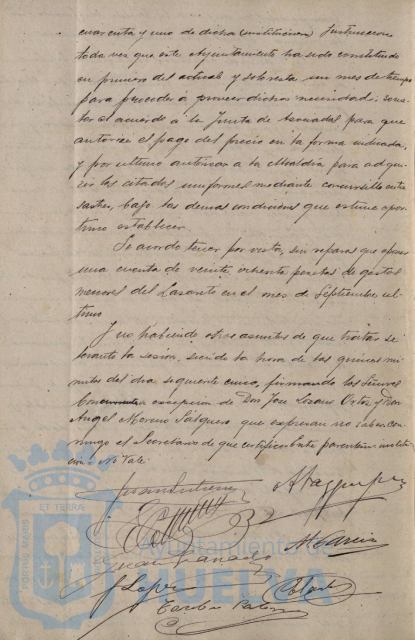 cuarenta y uno de dicha institucion Instruccion
toda vez que este Ayuntamiento ha sido constituido
en primero del actual y solo resta un mes de tiempo
para proceder á proveer dicha necesidad;
el acuerdo a la Junta de Asociados para que
autorice el pago del precio en la forma indicada,
y por ultimo autorizar a la Alcaldia para adqui-
rir los citados uniformes mediante concursillo entre
sastres, bajo las demas condiciones que estime opor-
tuno establecer.
Se acordo tener por vista, sin reparos que oponer
una cuenta de veinte ochenta pesetas de gastos
menores del Lazareto en el mes de Septiembre ul-
timo
Y no habiendo otros asuntos de que tratar se
levanta la sesion, siendo la hora de las quince mi-
nutos del dia seguiente cinco, firmando los Señores
a excepcion de Don Jose Lozano Ortiz y Don
Angel Moreno Salguero que expresan no saber con-
migo el Secretario de que certifico. Entre parentesis = institu-
cion = No Vale
Juan Gutierrez
M. Garcia
Juan
J. Lopez
Ayuntamiento de
HUELVA
ET TERRÆ